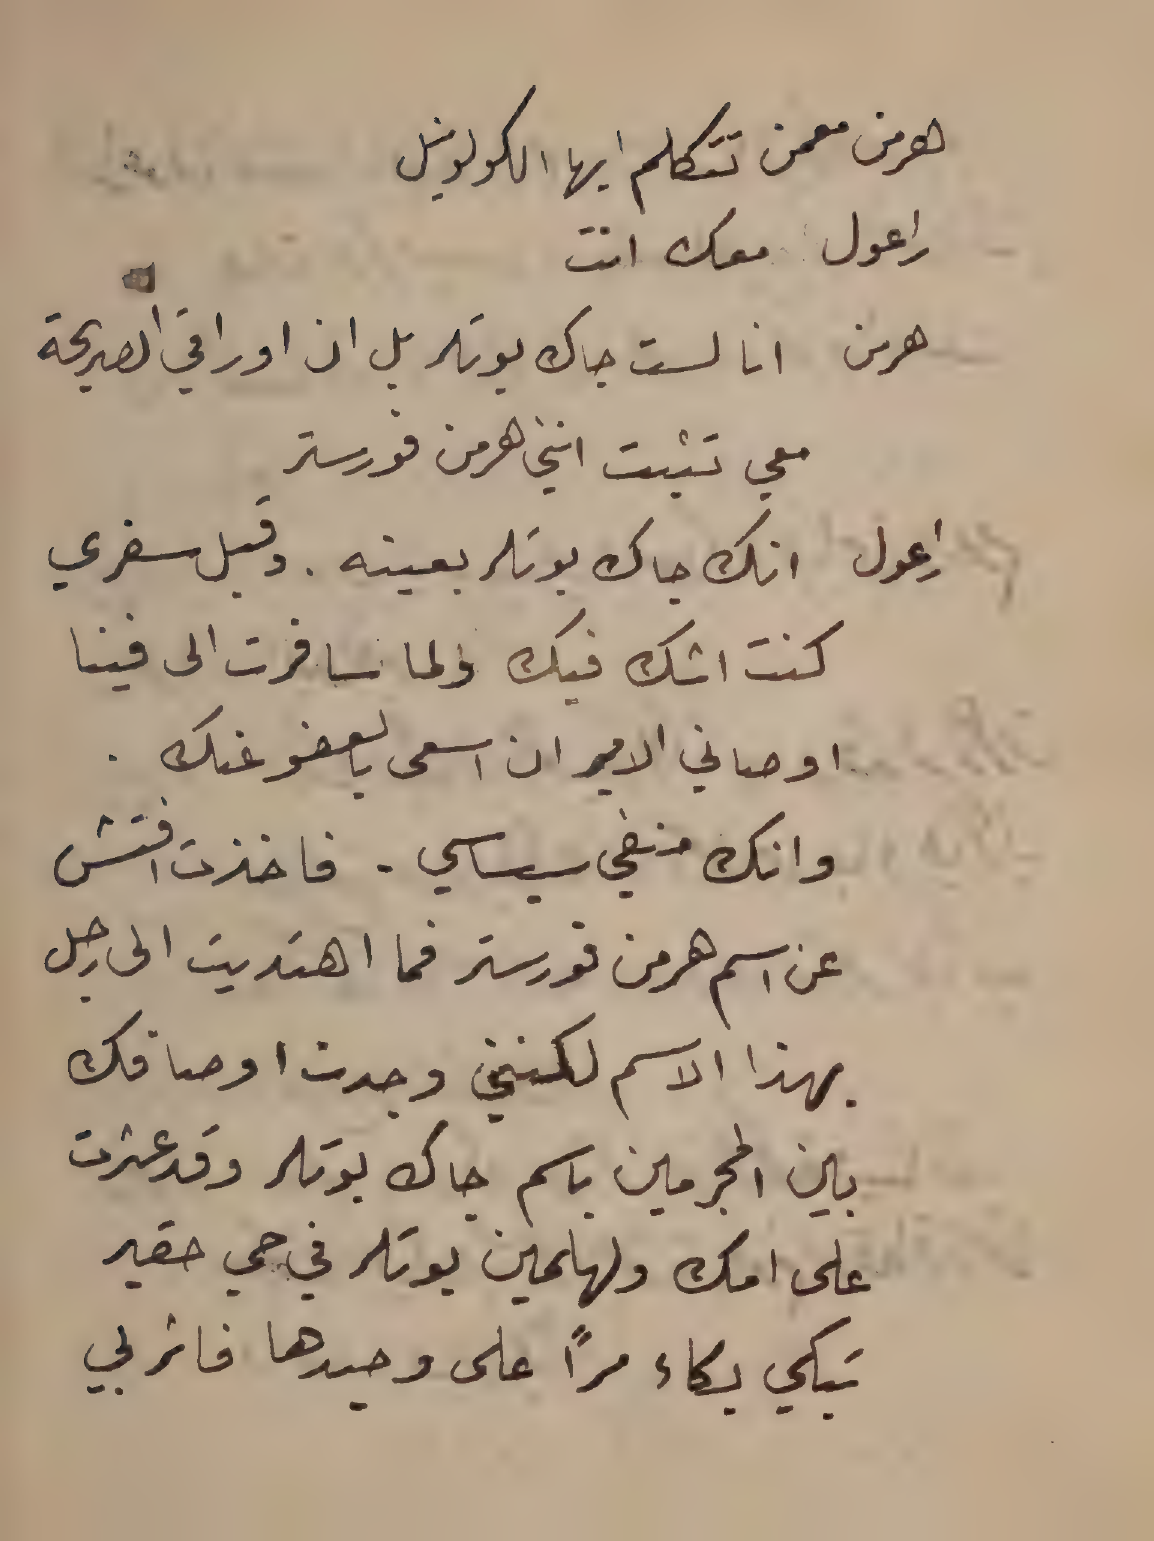 هرمن معمن تتكلم ايها الكولونيل
راعول معك انت
هرمن انا لست جاك بوتلر بل ان اوراقي الصريحة
معي تثبت انني هرمن فورستر
راعول انك جاك بوتلر بعينه . وقبل سفري
كنت اشك فيك ولما سافرت الى فينا
اوصاني الامير ان اسعى بالعفو عنك .
وانك منفي سياسي . فاخذت افتش
عن اسم هرمن فورستر فما اهتديت الى رجل
بهذا الاسم لكنني وجدت اوصافك
بين المجرمين باسم جاك بوتلر وقد عثرت
على امك ولهلمين بوتلر في حي حقير
تبكي بكاء مرًا على وحيدها فاثر بي